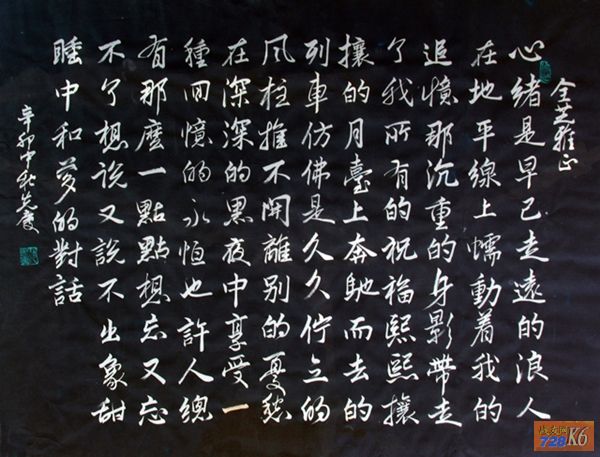 全芝雅正
心緒是早已走遠的浪人
在地平線上蠕動着我的
追憶那沉重的身影帶走
了我所有的祝福熙熙攘
攘的月臺上奔馳而去的
列車仿佛是久久佇立的
风柱推不開離别的憂愁
在深深的黑夜中享受一
種回憶的永恒也許人總
有那麼一點點想忘又忘
不了想説又説不出象甜
睡中和夢的對話
辛卯中秋
战友网
728K6